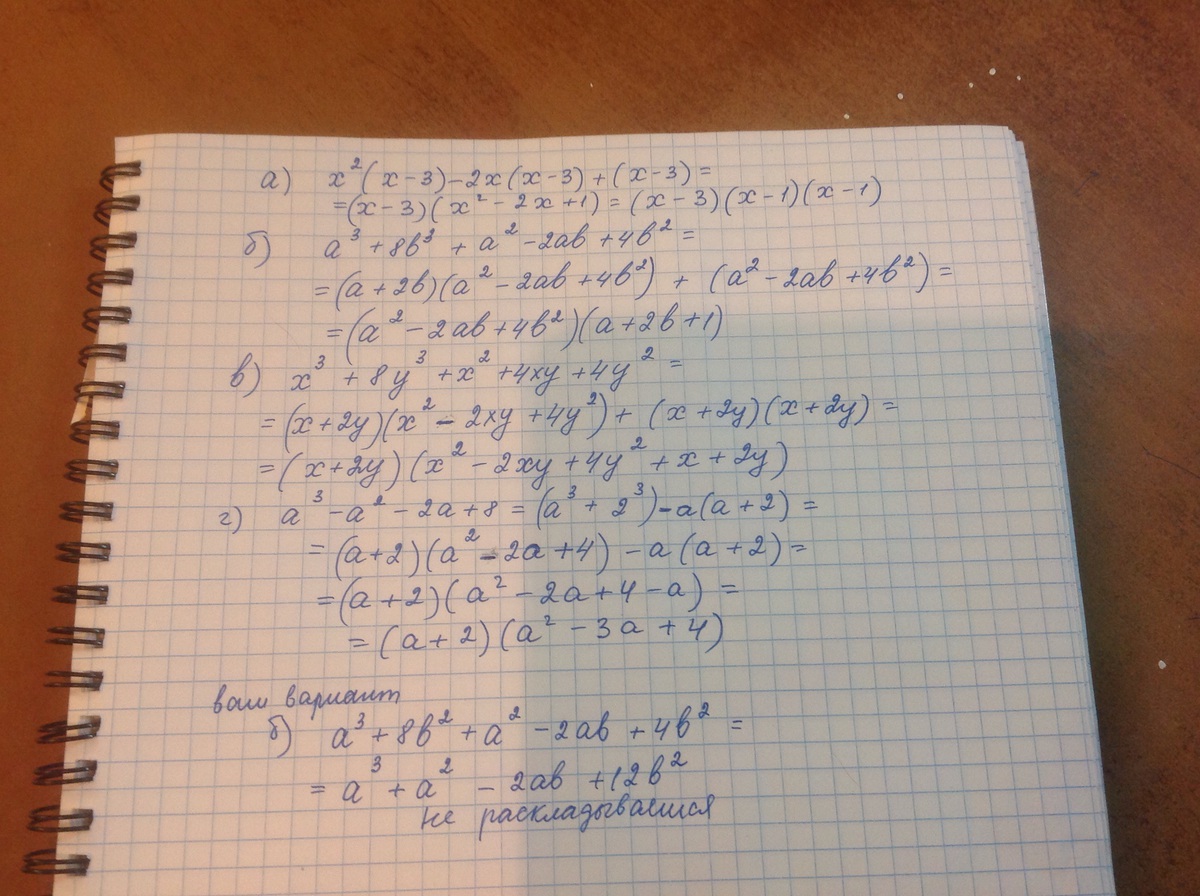 а) x²(x-3)-2x(x-3)+(x-3)=
=(x-3)(x²-2x+1)=(x-3)(x-1)(x-1)
б) a³+8b³+a²-2ab+4b²=
=(a+2b)(a²-2ab+4b²)+(a²-2ab+4b²)=
=(a²-2ab+4b²)(a+2b+1)
в) x³+8y³+x²+4xy+4y²=
=(x+2y)(x²-2xy+4y²)+(x+2y)(x+2y)=
=(x+2y)(x²-2xy+4y²+x+2y)
г) a³-a²-2a+8=(a³+2³)-a(a+2)=
=(a+2)(a²-2a+4)-a(a+2)=
=(a+2)(a²-2a+4-a)=
=(a+2)(a²-3a+4)
ваш вариант
б) a³+8b²+a²-2ab+4b²=
=a³+a²-2ab+12b²
не раскладывается